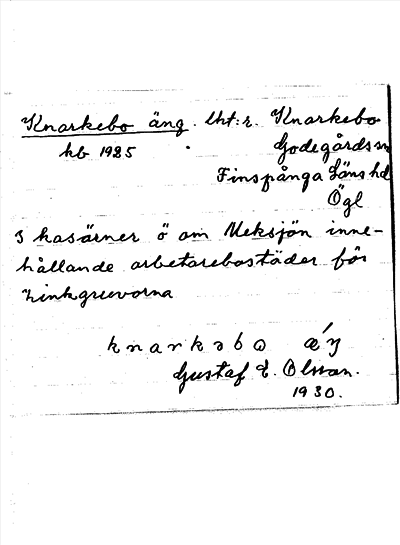 Knarkebo äng. lht:r. Knarkebo
kb 1925 Godegårds sn
Finspånga Läns hd
Ögl
3 kasärner ö om Meksjön inne-
hållande arbetarebostäder för
zinkgruvorna
knarkəbo
Gustaf E. Olsson.
1930.